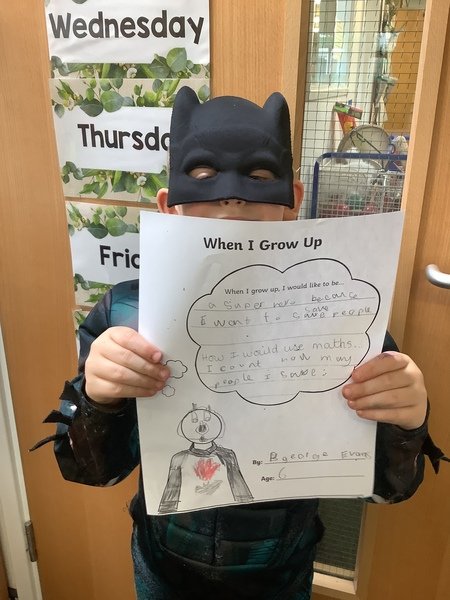 Wednesday
Thursda
Fri
When I Grow Up
When I grow up, I would like to be...
a super hero because
save
I want to save people
How I would use maths...
I count how many
people I save
By: George Evans
Age: 6